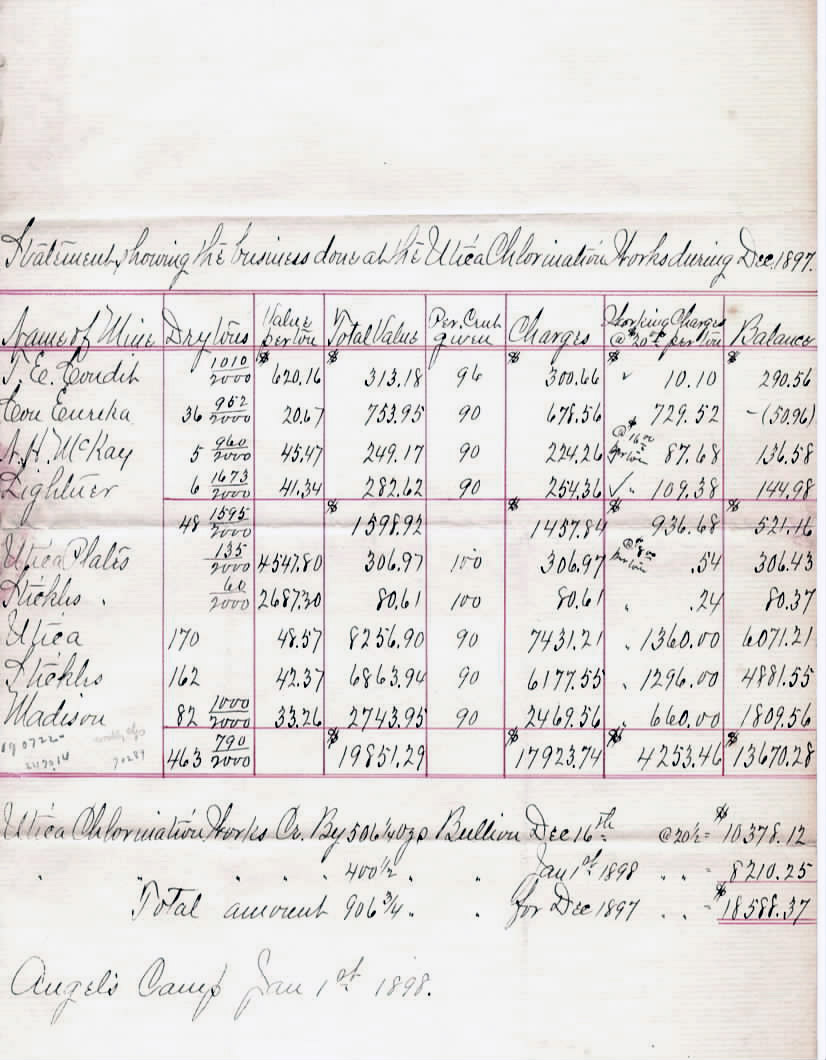 Statement showing the business done at the Utica Chlorination Works during Dec. 1897.
Name of Mine Dry tons Value per ton Total Value Per. Cent given Charges Working Charges @ $20 00 per ton Balance
T. E. Condit 1010/2000 $620.16 $313.18 96 $300.66 " $10.10 $290.56
Con Eureka 36 952/2000 20.67 753.95 90 678.56 " 729.52 -(50.96)
A. H. McKay 5 960/2000 45.47 249.17 90 224.26 @ $16 00 per ton 87.68 136.58
Lightner 6 1673/2000 41.34 282.62 90 254.36 ✓ " 109.38 144.98
48 1595/2000 $1598.92 $1457.84 $936.68 $521.16
Utica Plates 135/2000 4547.80 306.97 100 306.97 @ $8 00 per ton .54 306.43
Stickles " 60/2000 2687.20 80.61 100 80.61 " .24 80.37
Utica 170 48.57 8256.90 90 7431.21 " 1360.00 6071.21
Stickles 162 42.37 6863.94 90 6177.55 " 1296.00 4881.55
Madison 82 1000/2000 33.26 2743.95 90 2469.56 " 660.00 1809.56
463 790/2000 $19851.29 $17923.74 $4253.46 $13670.28
Utica Chlorination Works Cr. By 506 1/4 ozs Bullion Dec 16th @ 20 1/2 = $10378.12
" " " " " 400 1/2 " " Jan 1st 1898 " " = 8210.25
Total amount 906 3/4 " " for Dec 1897 " " = $18588.37
Angels Camp Jan 1st 1898.